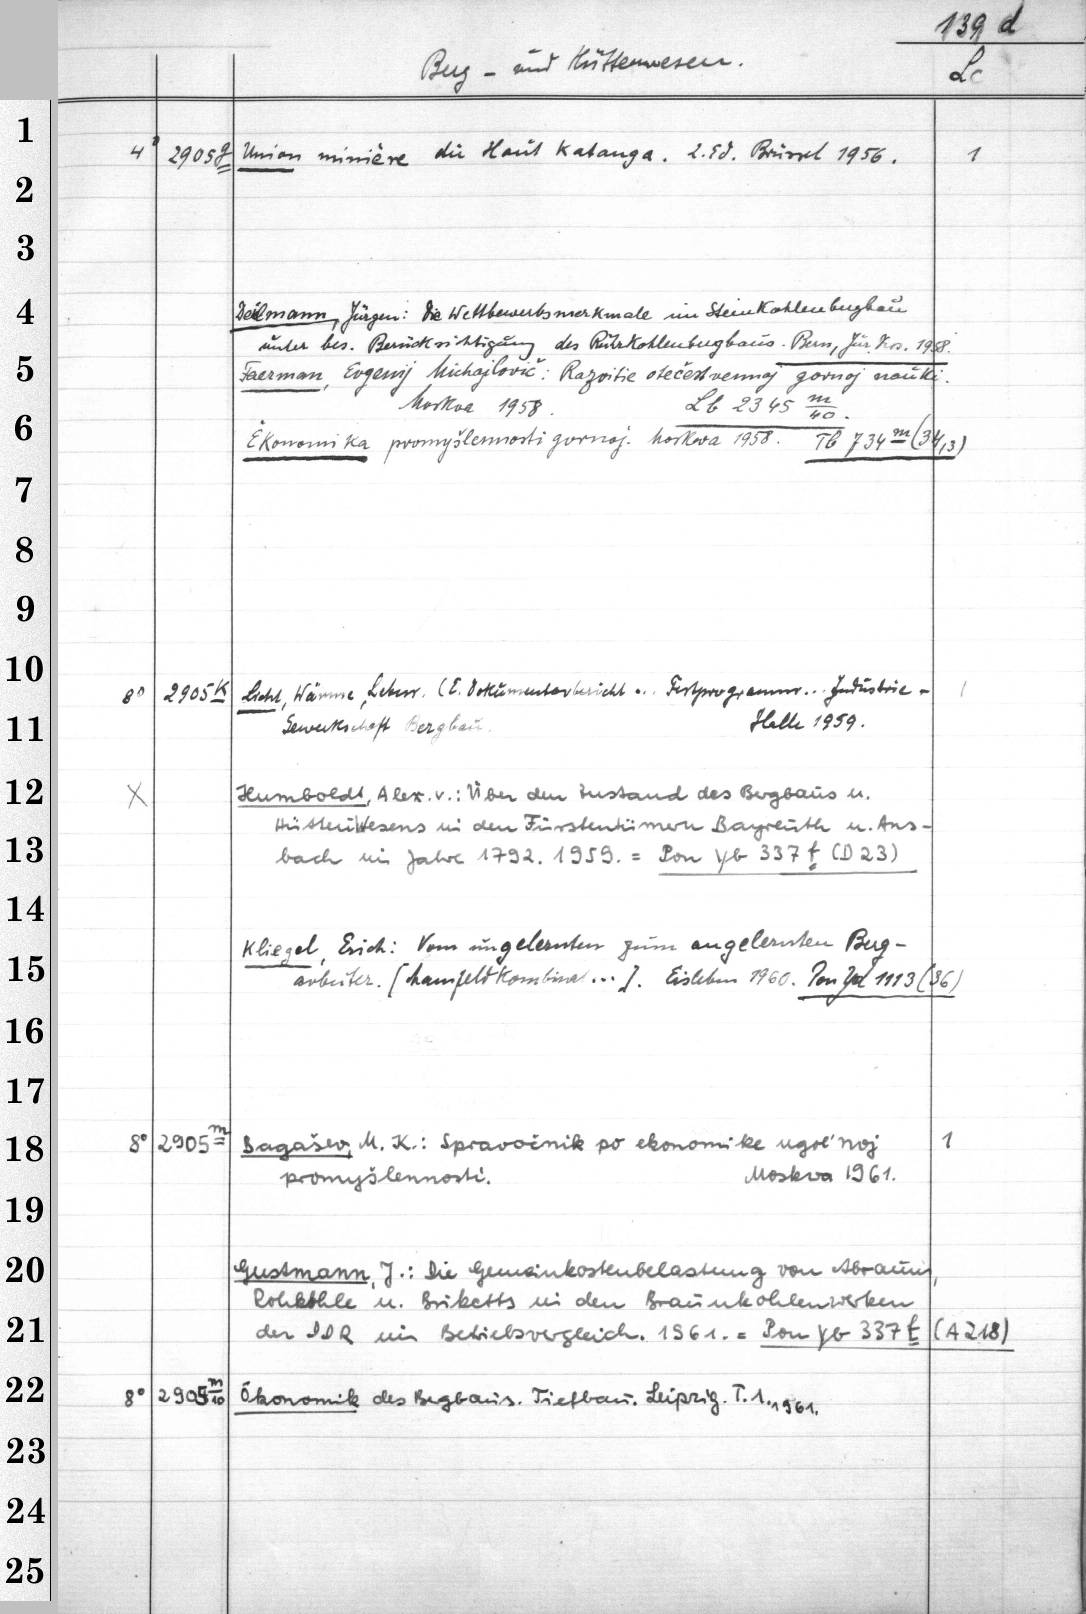 139 d
Berg- und Hüttenwesen. Lc
1
4° 2905 g Union minière du Haut Katanga. 2. Ed. Brüssel 1956. 1
2
3
4 Deilmann, Jürgen: Die Wettbewerbsmerkmale im Steinkohlenbergbau
unter bes. Berücksichtigung des Ruhrkohlenbergbaus. Bern, Jur. Diss. 1958.
5 Faerman, Evgenij Michajlovič: Razvitie otečestvennoj gornoj nauki.
Moskva 1958. Lb 2345 m/40.
6 Ėkonomika promyšlennosti gornoj. Moskva 1958. Tb 734 m (34,13)
7
8
9
10
8° 2905 k Licht, Wärme, Leben. (E. Dokumentarbericht ... Festprogramm... Industrie- 1
11 Gewerkschaft Bergbau. Halle 1959.
12 X Humboldt, Alex. v.: Über den Zustand des Bergbaus u.
Hüttenwesens in den Fürstentümern Bayreuth u. Ans-
13 bach im Jahre 1792. 1959. = Pon Yb 337 t (D 23)
14
Kliegel, Erich: Vom ungelernten zum angelernten Berg-
15 arbeiter. [Mansfeld Kombinat ...]. Eisleben 1960. Pon Yd 1113 (36)
16
17
18 8° 2905 m Bagašev, M. K.: Spravočnik po ekonomike ugol'noj 1
promyšlennosti. Moskva 1961.
19
20 Gustmann, J.: Die Gemeinkostenbelastung von Abraum,
Rohkohle u. Briketts in den Braunkohlenwerken
21 der DDR im Betriebsvergleich. 1961. = Pon Yb 337 t (A 218)
22 8° 2905 m/10 Ökonomik des Bergbaus. Tiefbau. Leipzig. T. 1. 1961.
23
24
25